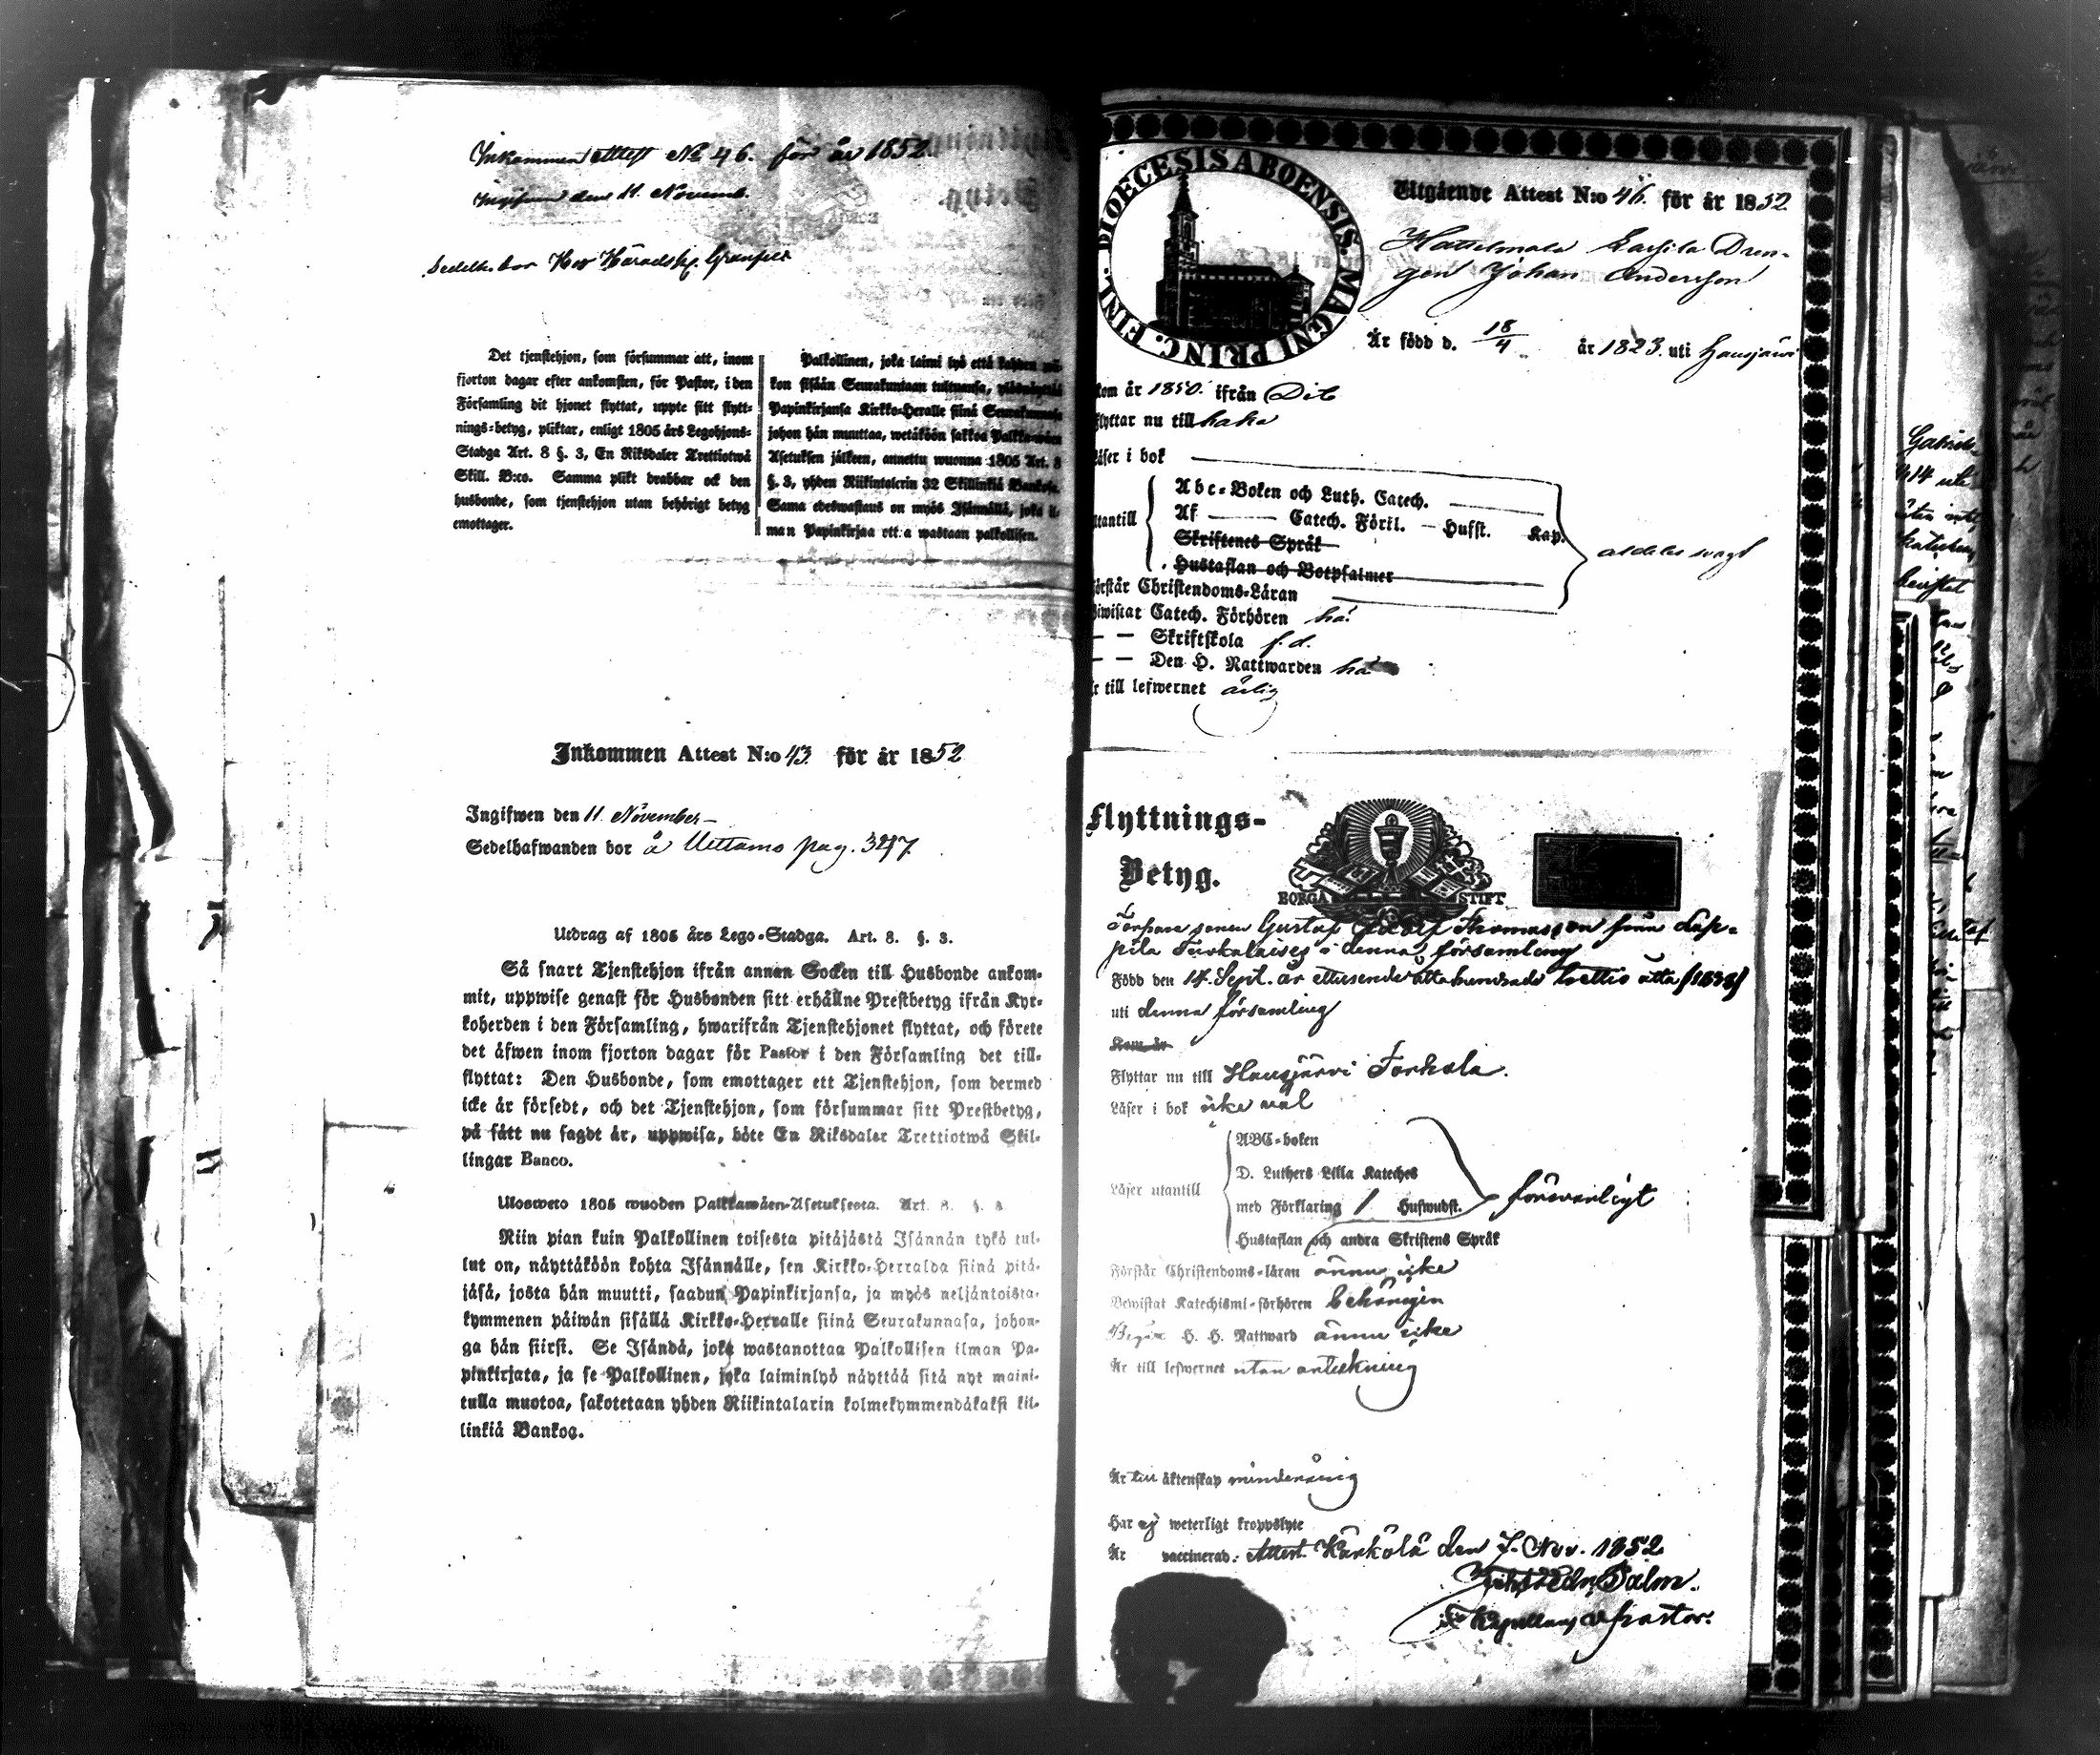 Inkommen Attest No 46. för år 1852
Ingifwen den 11. Novemb.
bor Häradsh.
Det tjenstehjon, som försummar att, inom
fjorton dagar efter ankomsten, för Pastor, i den
Församling dit hjonet flyttat, uppte sitt flytt-
nings-betyg, pliktar, enligt 1805 års Legohjons-
Stadga Art. 8 §. 3, En Riksdaler Trettiotwå
Skill. B:co. Samma plikt drabbar ock den
husbonde, som tjenstehjon utan behörigt betyg
emottager.
Palkollinen, joka laimi lyö että kahden wii-
kon sisään Seurakuntaan tultuansa,
Papinkirjansa Kirkko-Heralle siinä Seurakunnasa
johon hän muuttaa, wetäköön sakkoa Palkkawäen
Asetuksen jälkeen, annettu wuonna 1805 Art. 8
§. 3, yhden Riikintalerin 32 Skillinkiä Bankosa.
Sama edeswastaus on myös Isännällä, joka il-
man Papinkirjaa ottaa wastaan palkollisen.
Inkommen Attest N:o 43. för år 1852
Ingifwen den 11. November
Sedelhafwanden bor å Uettamo pag. 347.
Utdrag af 1805 års Lego-Stadga. Art. 8. §. 3.
Så snart Tjenstehjon ifrån annan Socken till Husbonde ankom-
mit, uppwise genast för Husbonden sitt erhållne Prestbetyg ifrån Kyr-
koherden i den Församling, hwarifrån Tjenstehjonet flyttat, och förete
det äfwen inom fjorton dagar för Pastor i den Församling det till-
flyttat: Den Husbonde, som emottager ett Tjenstehjon, som dermed
icke är försedt, och det Tjenstehjon, som försummar sitt Prestbetyg,
på sätt nu sagdt är, uppwisa, böte En Riksdaler Trettiotwå Skil-
lingar Banco.
Uloswеto 1805 wuoden Palkkawäen-Asetuksesta. Art. 8. §. 3.
Niin pian kuin Palkollinen toisesta pitäjästä Isännän tykö tul-
lut on, näyttäköön kohta Isännälle, sen Kirkko-Herralda siinä pitä-
jäsä, josta hän muutti, saadun Papinkirjansa, ja myös neljäntoista-
kymmenen päiwän sisällä Kirkko-Herralle siinä Seurakunnasa, johon-
ga hän siirsi. Se Isändä, joka wastanottaa Palkollisen ilman Pa-
pinkirjata, ja se Palkollinen, joka laiminlyö näyttää sitä nyt maini-
tulla muotoa, sakotetaan yhden Riikintalarin kolmekymmendäkaksi kil-
linkiä Bankoa.
DIOECESIS ABOENSIS. MAGNI PRINC. FINL.
Utgående Attest N:o 46. för år 1852.
Dren-
gen Johan Andersson
Är född d. 18/4 år 1823. uti Hausjärvi
kom år 1850. ifrån Dit
flyttar nu till
Läser i bok
Abc-Boken och Luth. Catech.
utantill
Af Catech. Förkl. Hufst. Kap.
Skriftenes Språk
Hustaflan och Botpsalmer
alldeles swagt
Förstår Christendoms-Läran
Biwistat Catech. Förhören
Skriftskola f. d.
Den H. Nattwarden
Är till lefwernet ärlig
Flyttnings-
Betyg.
BORGÅ STIFT
Torpare sonen Gustaf Adolf Thomasson från Lap-
pila i denna församling
Född den 14. Sept. år ettusende åttahundrade trettio åtta (1838)
uti denna församling
Kom år
Flyttar nu till Hausjärvi Torhola.
Läser i bok icke wäl
ABC-boken
D. Luthers Lilla Kateches
Läser utantill
med Förklaring 1 Hufwudst. försvarligt
Hustaflan och andra Skriftens Språk
Förstår Christendoms-läran ännu icke
Bewistat Katechismi-förhören behörigen
Begått H. H. Nattward ännu icke
Är till lefwernet utan anteckning
Är till äktenskap minderårig
Har ej weterligt kroppslyte
Är vaccinerad. Attest. Kärkölä den 7. Nov. 1852
Palm.
Kapellan, v. Pastor.